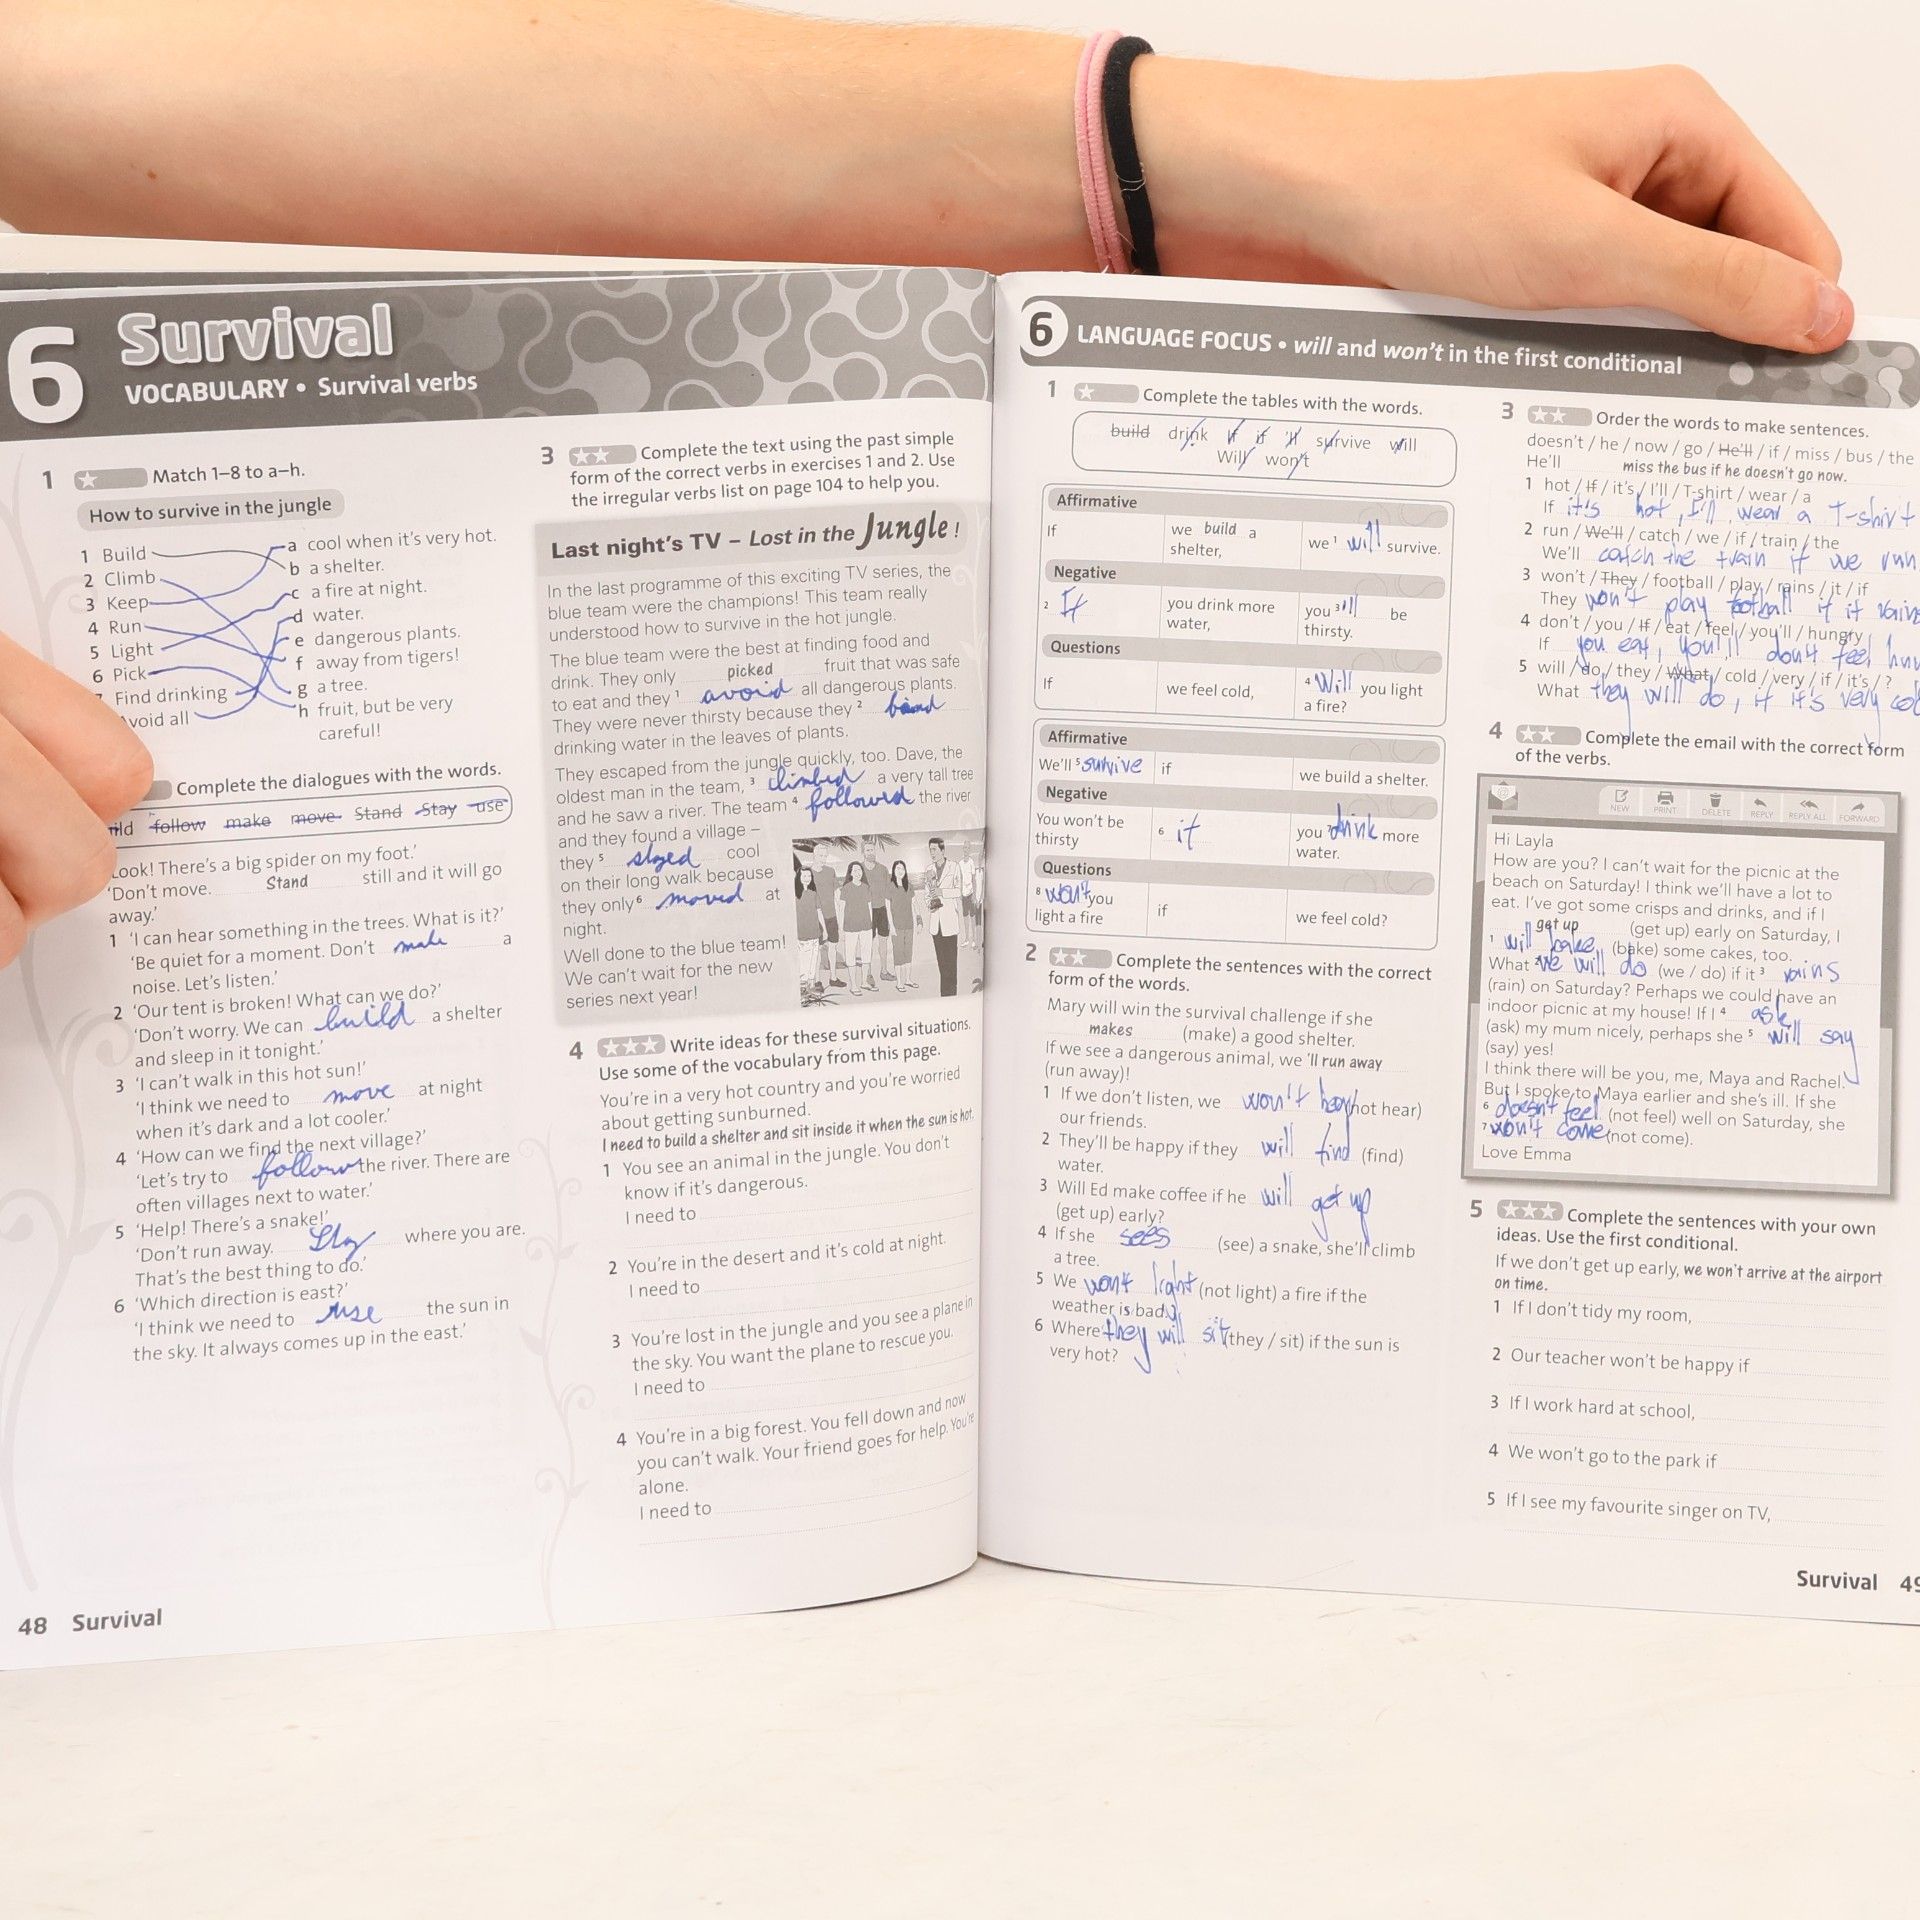 6 Survival
VOCABULARY • Survival verbs
1 Match 1–8 to a–h.
How to survive in the jungle
1 Build
2 Climb
3 Keep
4 Run
5 Light
6 Pick
Find drinking
void all
a cool when it's very hot.
b a shelter.
c a fire at night.
d water.
e dangerous plants.
f away from tigers!
g a tree.
h fruit, but be very
careful!
Complete the dialogues with the words.
ild follow make move Stand Stay use
Look! There's a big spider on my foot.'
'Don't move. Stand still and it will go
away.'
1 'I can hear something in the trees. What is it?'
'Be quiet for a moment. Don't make a
noise. Let's listen.'
2 'Our tent is broken! What can we do?'
'Don't worry. We can build a shelter
and sleep in it tonight.'
3 'I can't walk in this hot sun!'
'I think we need to move at night
when it's dark and a lot cooler.'
4 'How can we find the next village?'
'Let's try to follow the river. There are
often villages next to water.'
5 'Help! There's a snake!'
'Don't run away. Stay where you are.
That's the best thing to do.'
6 'Which direction is east?'
'I think we need to use the sun in
the sky. It always comes up in the east.'
48 Survival
3 Complete the text using the past simple
form of the correct verbs in exercises 1 and 2. Use
the irregular verbs list on page 104 to help you.
Last night's TV – Lost in the Jungle!
In the last programme of this exciting TV series, the
blue team were the champions! This team really
understood how to survive in the hot jungle.
The blue team were the best at finding food and
drink. They only picked fruit that was safe
to eat and they 1 avoid all dangerous plants.
They were never thirsty because they 2
drinking water in the leaves of plants.
They escaped from the jungle quickly, too. Dave, the
oldest man in the team, 3 climbed a very tall tree
and he saw a river. The team 4 followed the river
and they found a village –
they 5 stayed cool
on their long walk because
they only 6 moved at
night.
Well done to the blue team!
We can't wait for the new
series next year!
4 Write ideas for these survival situations.
Use some of the vocabulary from this page.
You're in a very hot country and you're worried
about getting sunburned.
I need to build a shelter and sit inside it when the sun is hot.
1 You see an animal in the jungle. You don't
know if it's dangerous.
I need to
2 You're in the desert and it's cold at night.
I need to
3 You're lost in the jungle and you see a plane in
the sky. You want the plane to rescue you.
I need to
4 You're in a big forest. You fell down and now
you can't walk. Your friend goes for help. You're
alone.
I need to
6 LANGUAGE FOCUS • will and won't in the first conditional
1 Complete the tables with the words.
build drink If if 'll survive will
Will won't
Affirmative
If we build a we 1 will survive.
shelter,
Negative
2 If you drink more you 3 'll be
water, thirsty.
Questions
If we feel cold, 4 Will you light
a fire?
Affirmative
We'll 5 survive if we build a shelter.
Negative
You won't be 6 it you 7 drink more
thirsty water.
Questions
8 won't you if we feel cold?
light a fire
2 Complete the sentences with the correct
form of the words.
Mary will win the survival challenge if she
makes (make) a good shelter.
If we see a dangerous animal, we 'll run away
(run away)!
1 If we don't listen, we won't hear (not hear)
our friends.
2 They'll be happy if they will find (find)
water.
3 Will Ed make coffee if he will get up
(get up) early?
4 If she sees (see) a snake, she'll climb
a tree.
5 We won't light (not light) a fire if the
weather is bad.
6 Where they will sit (they / sit) if the sun is
very hot?
3 Order the words to make sentences.
doesn't / he / now / go / He'll / if / miss / bus / the
He'll miss the bus if he doesn't go now.
1 hot / If / it's / I'll / T-shirt / wear / a
If it's hot, I'll wear a T-shirt
2 run / We'll / catch / we / if / train / the
We'll catch the train if we run
3 won't / They / football / play / rains / it / if
They won't play football if it rains
4 don't / you / If / eat / feel / you'll / hungry
If you eat, you'll don't feel hun
5 will / do / they / What / cold / very / if / it's / ?
What they will do, if it's very col
4 Complete the email with the correct form
of the verbs.
NEW PRINT DELETE REPLY REPLY ALL FORWARD
Hi Layla
How are you? I can't wait for the picnic at the
beach on Saturday! I think we'll have a lot to
eat. I've got some crisps and drinks, and if I
get up (get up) early on Saturday, I
1 will bake (bake) some cakes, too.
What 2 we will do (we / do) if it 3 rains
(rain) on Saturday? Perhaps we could have an
indoor picnic at my house! If I 4 ask
(ask) my mum nicely, perhaps she 5 will say
(say) yes!
I think there will be you, me, Maya and Rachel.
But I spoke to Maya earlier and she's ill. If she
6 doesn't feel (not feel) well on Saturday, she
7 won't come (not come).
Love Emma
5 Complete the sentences with your own
ideas. Use the first conditional.
If we don't get up early, we won't arrive at the airport
on time.
1 If I don't tidy my room,
2 Our teacher won't be happy if
3 If I work hard at school,
4 We won't go to the park if
5 If I see my favourite singer on TV,
Survival 49